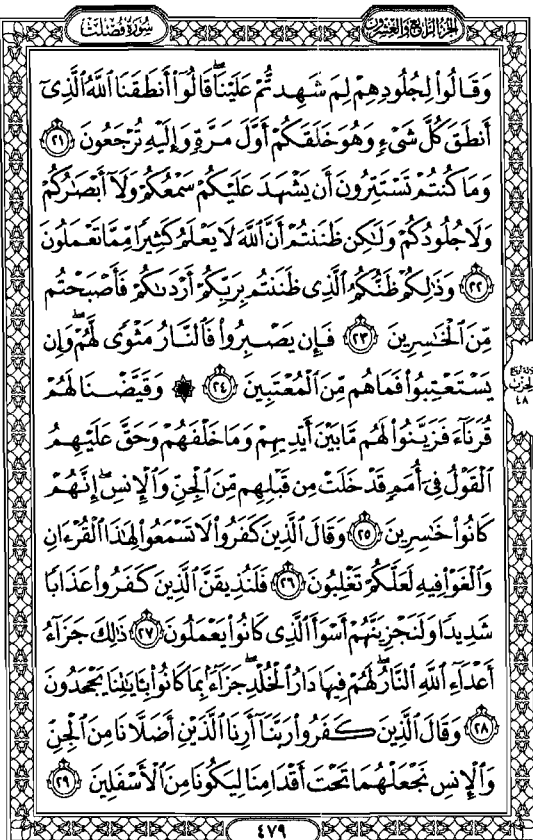 الجزء الرابع والعشرون
سورة فصلت
وَقَالُوا۟ لِجُلُودِهِمْ لِمَ شَهِدتُّمْ عَلَيْنَا ۖ قَالُوٓا۟ أَنطَقَنَا ٱللَّهُ ٱلَّذِىٓ
أَنطَقَ كُلَّ شَىْءٍ وَهُوَ خَلَقَكُمْ أَوَّلَ مَرَّةٍ وَإِلَيْهِ تُرْجَعُونَ ﴿٢١﴾
وَمَا كُنتُمْ تَسْتَتِرُونَ أَن يَشْهَدَ عَلَيْكُمْ سَمْعُكُمْ وَلَآ أَبْصَـٰرُكُمْ
وَلَا جُلُودُكُمْ وَلَـٰكِن ظَنَنتُمْ أَنَّ ٱللَّهَ لَا يَعْلَمُ كَثِيرًا مِّمَّا تَعْمَلُونَ
﴿٢٢﴾ وَذَٰلِكُمْ ظَنُّكُمُ ٱلَّذِى ظَنَنتُم بِرَبِّكُمْ أَرْدَىٰكُمْ فَأَصْبَحْتُم
مِّنَ ٱلْخَـٰسِرِينَ ﴿٢٣﴾ فَإِن يَصْبِرُوا۟ فَٱلنَّارُ مَثْوًى لَّهُمْ ۖ وَإِن
يَسْتَعْتِبُوا۟ فَمَا هُم مِّنَ ٱلْمُعْتَبِينَ ﴿٢٤﴾ ۞ وَقَيَّضْنَا لَهُمْ
قُرَنَآءَ فَزَيَّنُوا۟ لَهُم مَّا بَيْنَ أَيْدِيهِمْ وَمَا خَلْفَهُمْ وَحَقَّ عَلَيْهِمُ
ٱلْقَوْلُ فِىٓ أُمَمٍ قَدْ خَلَتْ مِن قَبْلِهِم مِّنَ ٱلْجِنِّ وَٱلْإِنسِ ۖ إِنَّهُمْ
كَانُوا۟ خَـٰسِرِينَ ﴿٢٥﴾ وَقَالَ ٱلَّذِينَ كَفَرُوا۟ لَا تَسْمَعُوا۟ لِهَـٰذَا ٱلْقُرْءَانِ
وَٱلْغَوْا۟ فِيهِ لَعَلَّكُمْ تَغْلِبُونَ ﴿٢٦﴾ فَلَنُذِيقَنَّ ٱلَّذِينَ كَفَرُوا۟ عَذَابًا
شَدِيدًا وَلَنَجْزِيَنَّهُمْ أَسْوَأَ ٱلَّذِى كَانُوا۟ يَعْمَلُونَ ﴿٢٧﴾ ذَٰلِكَ جَزَآءُ
أَعْدَآءِ ٱللَّهِ ٱلنَّارُ ۖ لَهُمْ فِيهَا دَارُ ٱلْخُلْدِ ۖ جَزَآءًۢ بِمَا كَانُوا۟ بِـَٔايَـٰتِنَا يَجْحَدُونَ
﴿٢٨﴾ وَقَالَ ٱلَّذِينَ كَفَرُوا۟ رَبَّنَآ أَرِنَا ٱلَّذَيْنِ أَضَلَّانَا مِنَ ٱلْجِنِّ
وَٱلْإِنسِ نَجْعَلْهُمَا تَحْتَ أَقْدَامِنَا لِيَكُونَا مِنَ ٱلْأَسْفَلِينَ ﴿٢٩﴾
الحزب
٤٨
٤٧٩